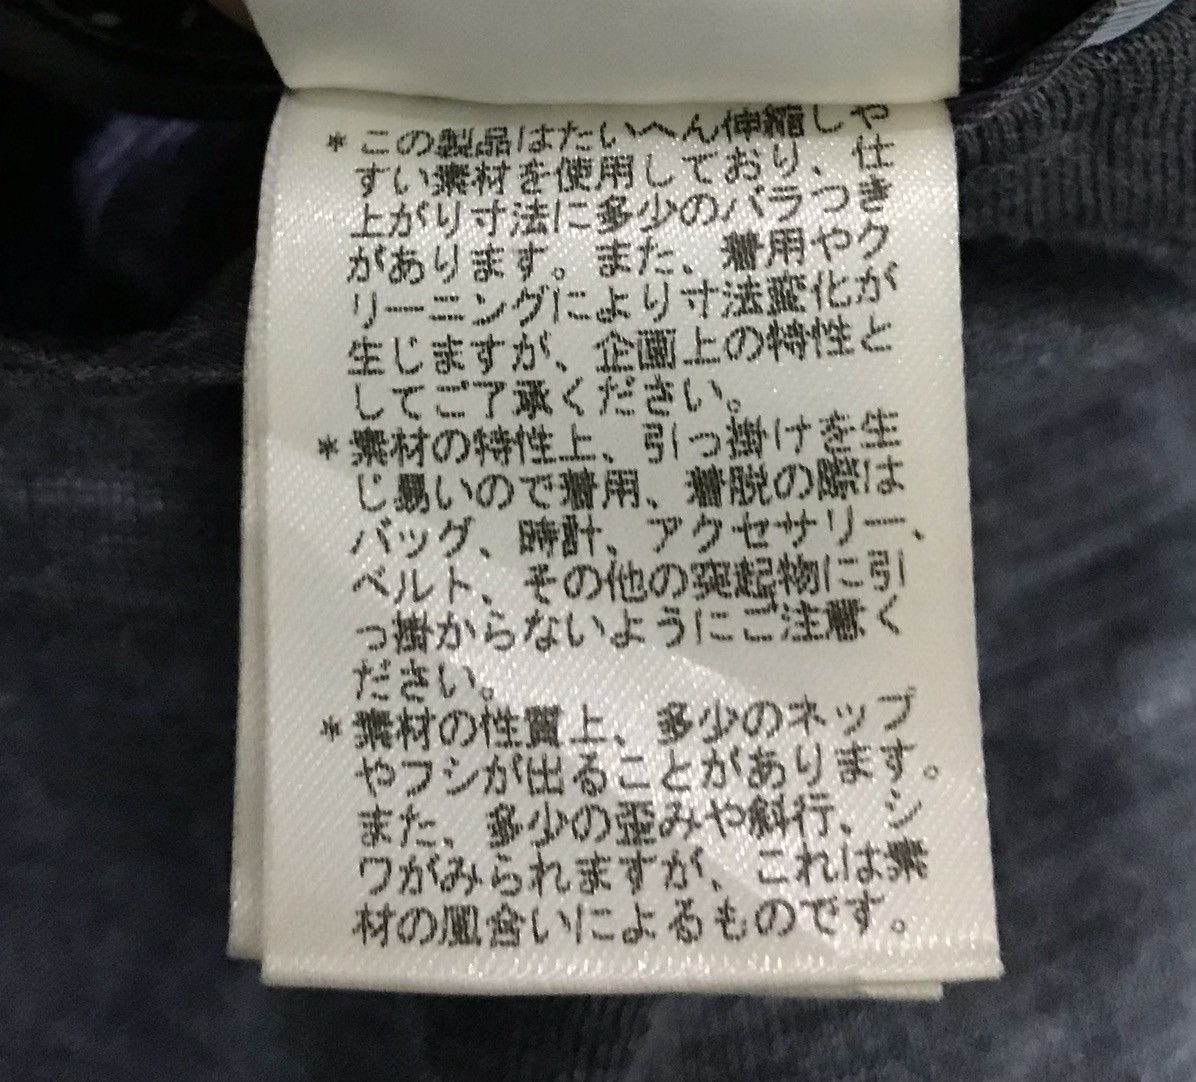 *この製品はたいへん伸縮しや
すい素材を使用しており、仕
上がり寸法に多少のバラつき
があります。また、着用やク
リーニングにより寸法変化が
生じますが、企画上の特性と
してご了承ください。
*素材の特性上、引っ掛けを生
じ易いので着用、着脱の際は
バッグ、時計、アクセサリー、
ベルト、その他の突起物に引
っ掛からないようにご注意く
ださい。
*素材の性質上、多少のネップ
やフシが出ることがあります。
また、多少の歪みや斜行、シ
ワがみられますが、これは素
材の風合いによるものです。